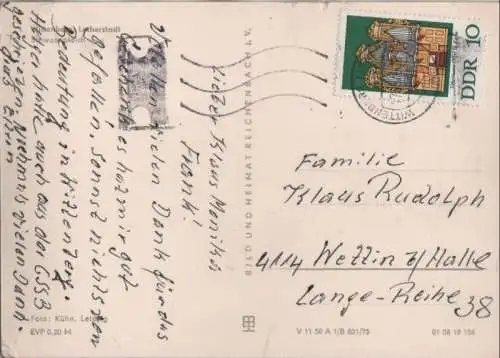 Lutherstadt
Lieber Klaus Monika u
Frank!
vielen Dank für das
es hat mir gut
gefallen. Sonst nichts von
Bedeutung in Wittenberg.
Holger hatte auch aus der CSSR
geschrieben. Nochmals vielen Dank.
Foto: Kühn, Leipzig
EVP 0,20 M
BILD UND HEIMAT REICHENBACH I. V.
V 11 50 A 1/B 601/75
01 08 19 156
DDR 10
WITTENB
Familie
Klaus Rudolph
4114 Wettin b/Halle
Lange-Reihe 38